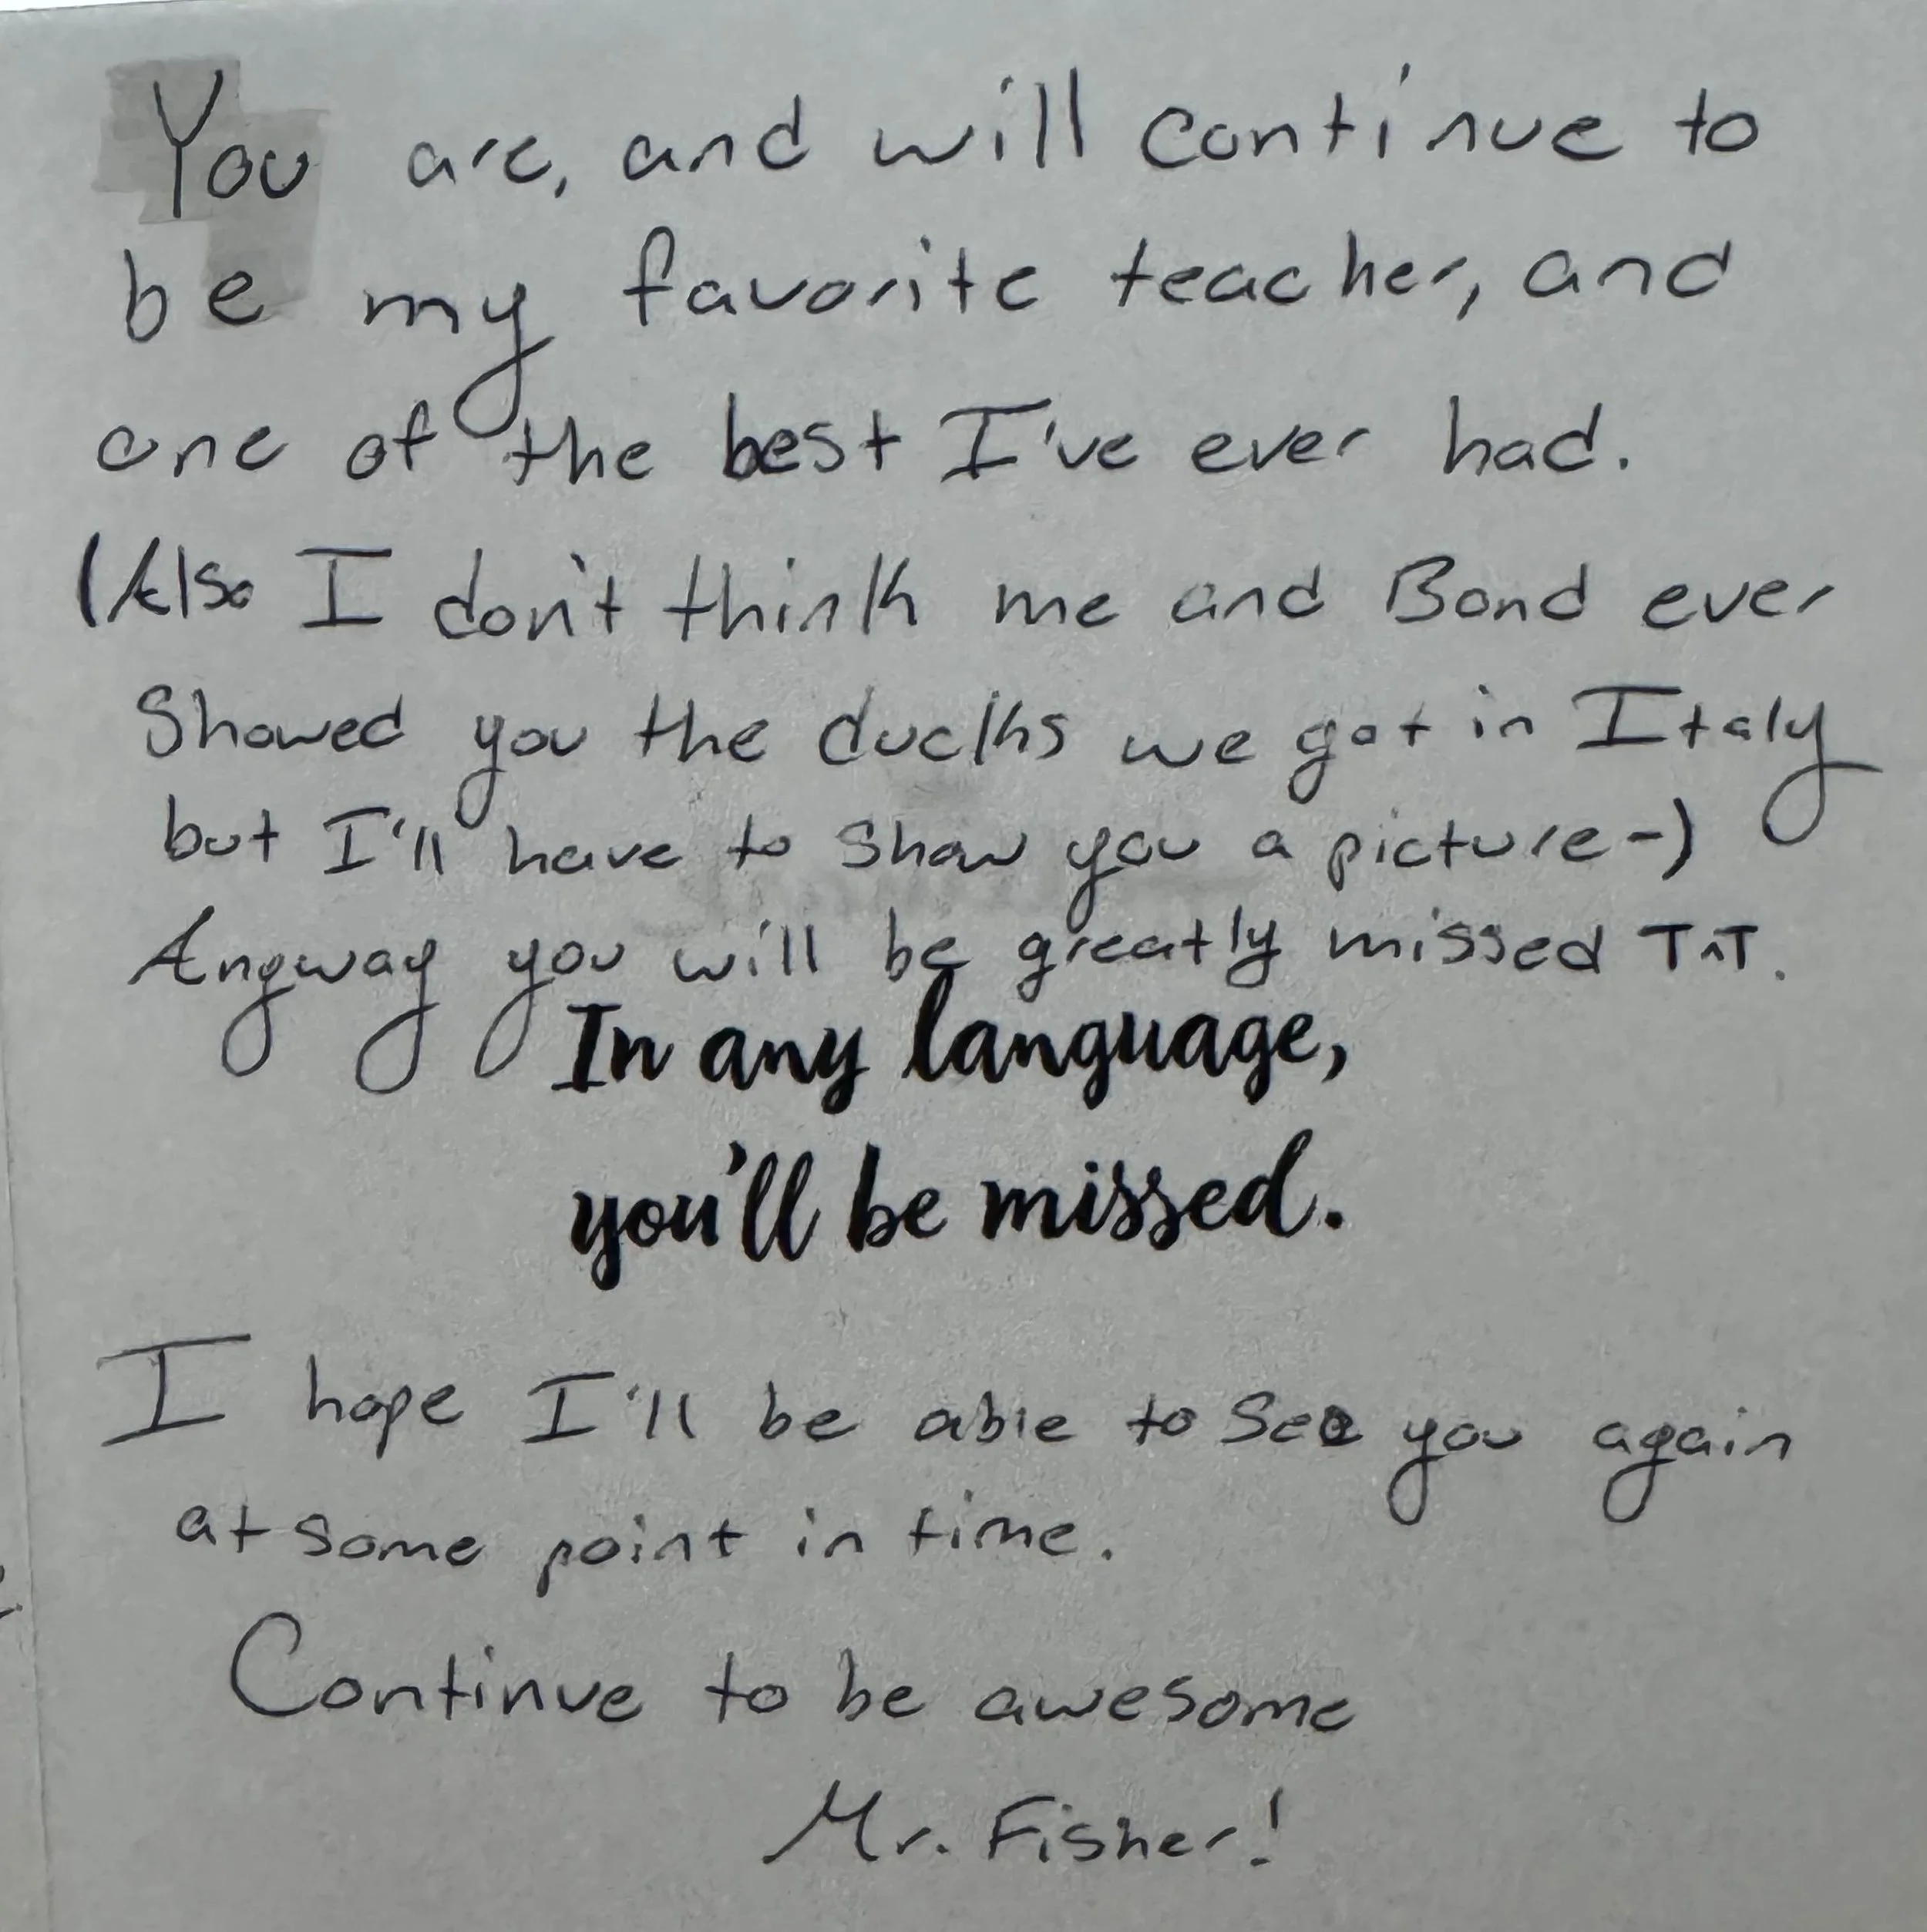 You are, and will continue to
be my favorite teacher, and
one of the best I've ever had.
(Also I don't think me and Bond ever
showed you the ducks we got in Italy
but I'll have to show you a picture-)
Anyway you will be greatly missed T^T.
In any language,
you'll be missed.
I hope I'll be able to see you again
at some point in time.
Continue to be awesome
Mr. Fisher!